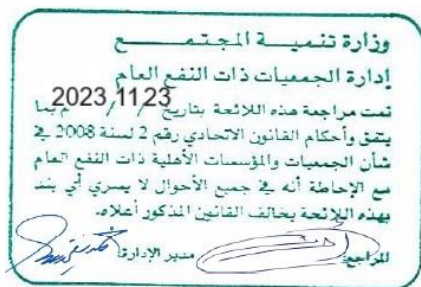 وزارة تنميـــة المجتمـــــع
إدارة الجمعيات ذات النفع العام
تمت مراجعة هذه اللائحة بتاريخ 2023 / 11 / 23 م بما
يتفق وأحكام القانون الاتحادي رقم 2 لسنة 2008 في
شأن الجمعيات والمؤسسات الأهلية ذات النفع العام
مع الإحاطة أنه في جميع الأحوال لا يسري أي بند
بهذه اللائحة يخالف القانون المذكور أعلاه.
المراجع: مدير الإدارة: